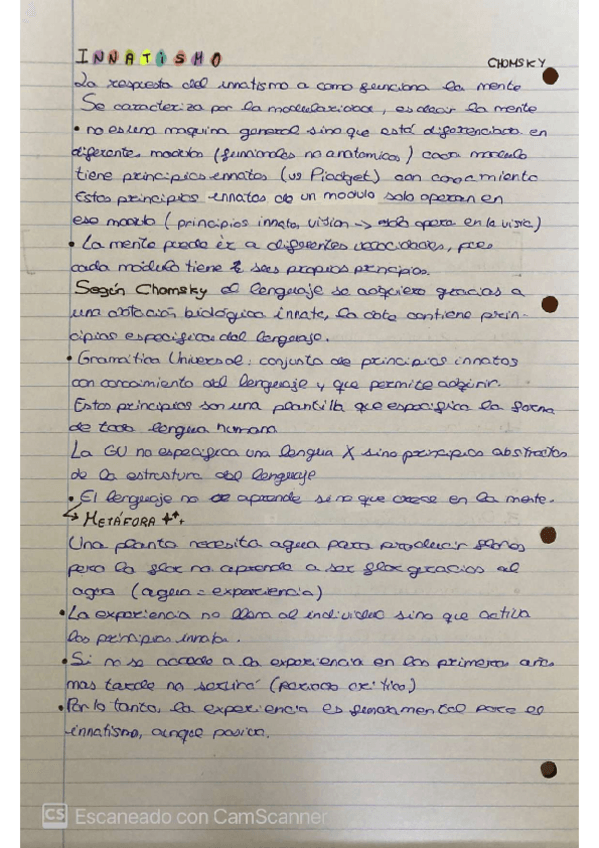 INNATISMO
CHOMSKY
La respuesta del innatismo a como funciona la mente
Se caracteriza por la modularidad, es decir la mente
• no es una maquina general sino que está diferenciada en
diferente modulos (funcionales no anatomicos) cada modulo
tiene principios ennatos (vs Piadget) con conocimiento
Estos principios ennatos de un modulo solo operan en
ese modulo ( principios innato, vision -> solo opera en la visió)
• La mente puede ir a diferentes velocidades, pues
cada módulo tiene sus propios principios.
Según Chomsky el lenguaje se adquiere gracias a
una dotación biológica innata, la cota contiene prin-
cipios especificos del lenguaje.
• Gramática Universal: conjunto de principios innatos
con conocimiento del lenguaje y que permite adqirir.
Estos principios son una plantilla que especifica la forma
de toda lengua humana
La GU no especifica una lengua X sino principios abstractos
de la estructura del lenguaje
• El lenguaje no se aprende sino que crece en la mente.
METÁFORA
Una planta necesita agua para producir flores
pero la flor no aprende a ser flor gracias al
agua (agua = experiencia)
• La experiencia no llena al individuo sino que activa
los principios innatos.
• Si no se accede a la experiencia en los primeros años
mas tarde no servirá (periodo crítico)
• Por lo tanto, la experiencia es fundamental para el
innatismo, aunque pasiva.
CS Escaneado con CamScanner